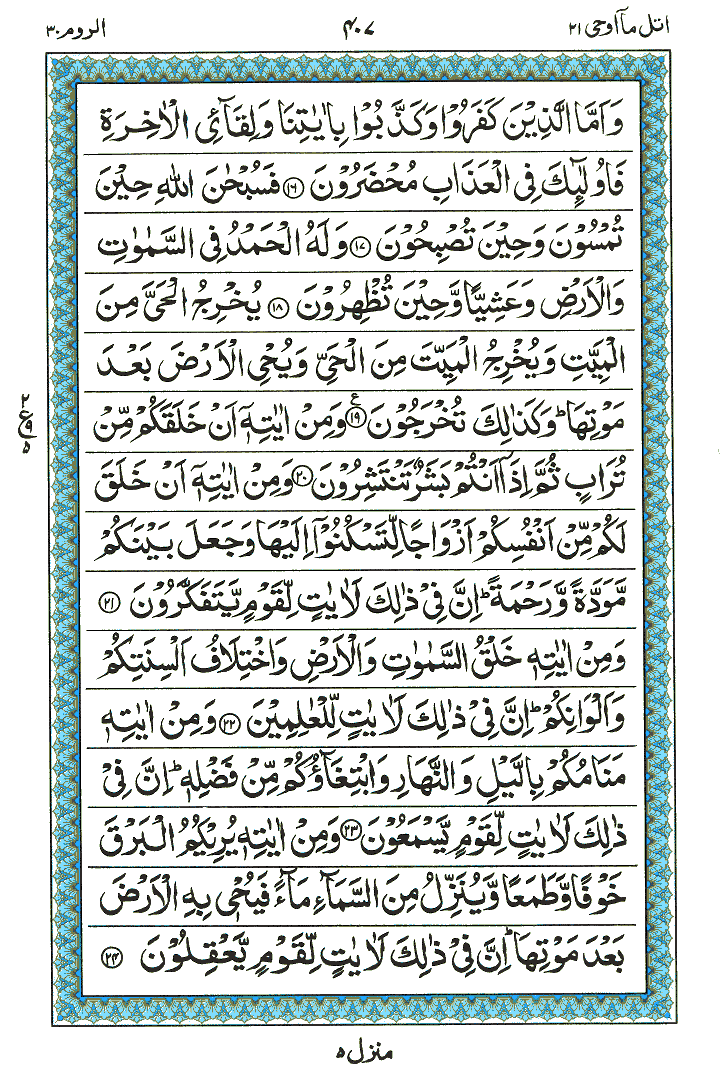 اتل مآ اوحی ۲۱
۴۰۷
الروم ۳۰
وَاَمَّا الَّذِیْنَ كَفَرُوْا وَكَذَّبُوْا بِاٰیٰتِنَا وَلِقَآئِ الْاٰخِرَةِ
فَاُولٰٓئِكَ فِی الْعَذَابِ مُحْضَرُوْنَ ۝۱۶ فَسُبْحٰنَ اللّٰهِ حِیْنَ
تُمْسُوْنَ وَحِیْنَ تُصْبِحُوْنَ ۝۱۷ وَلَهُ الْحَمْدُ فِی السَّمٰوٰتِ
وَالْاَرْضِ وَعَشِیًّا وَّحِیْنَ تُظْهِرُوْنَ ۝۱۸ یُخْرِجُ الْحَیَّ مِنَ
الْمَیِّتِ وَیُخْرِجُ الْمَیِّتَ مِنَ الْحَیِّ وَیُحْیِ الْاَرْضَ بَعْدَ
مَوْتِهَا ؕ وَكَذٰلِكَ تُخْرَجُوْنَ ۝۱۹ ع وَمِنْ اٰیٰتِهٖۤ اَنْ خَلَقَكُمْ مِّنْ
تُرَابٍ ثُمَّ اِذَاۤ اَنْتُمْ بَشَرٌ تَنْتَشِرُوْنَ ۝۲۰ وَمِنْ اٰیٰتِهٖۤ اَنْ خَلَقَ
لَكُمْ مِّنْ اَنْفُسِكُمْ اَزْوَاجًا لِّتَسْكُنُوْۤا اِلَیْهَا وَجَعَلَ بَیْنَكُمْ
مَّوَدَّةً وَّرَحْمَةً ؕ اِنَّ فِیْ ذٰلِكَ لَاٰیٰتٍ لِّقَوْمٍ یَّتَفَكَّرُوْنَ ۝۲۱
وَمِنْ اٰیٰتِهٖ خَلْقُ السَّمٰوٰتِ وَالْاَرْضِ وَاخْتِلَافُ اَلْسِنَتِكُمْ
وَاَلْوَانِكُمْ ؕ اِنَّ فِیْ ذٰلِكَ لَاٰیٰتٍ لِّلْعٰلِمِیْنَ ۝۲۲ وَمِنْ اٰیٰتِهٖ
مَنَامُكُمْ بِالَّیْلِ وَالنَّهَارِ وَابْتِغَآؤُكُمْ مِّنْ فَضْلِهٖ ؕ اِنَّ فِیْ
ذٰلِكَ لَاٰیٰتٍ لِّقَوْمٍ یَّسْمَعُوْنَ ۝۲۳ وَمِنْ اٰیٰتِهٖ یُرِیْكُمُ الْبَرْقَ
خَوْفًا وَّطَمَعًا وَّیُنَزِّلُ مِنَ السَّمَآءِ مَآءً فَیُحْیٖ بِهِ الْاَرْضَ
بَعْدَ مَوْتِهَا ؕ اِنَّ فِیْ ذٰلِكَ لَاٰیٰتٍ لِّقَوْمٍ یَّعْقِلُوْنَ ۝۲۴
۲
ع ۹
۵
منزل ۵